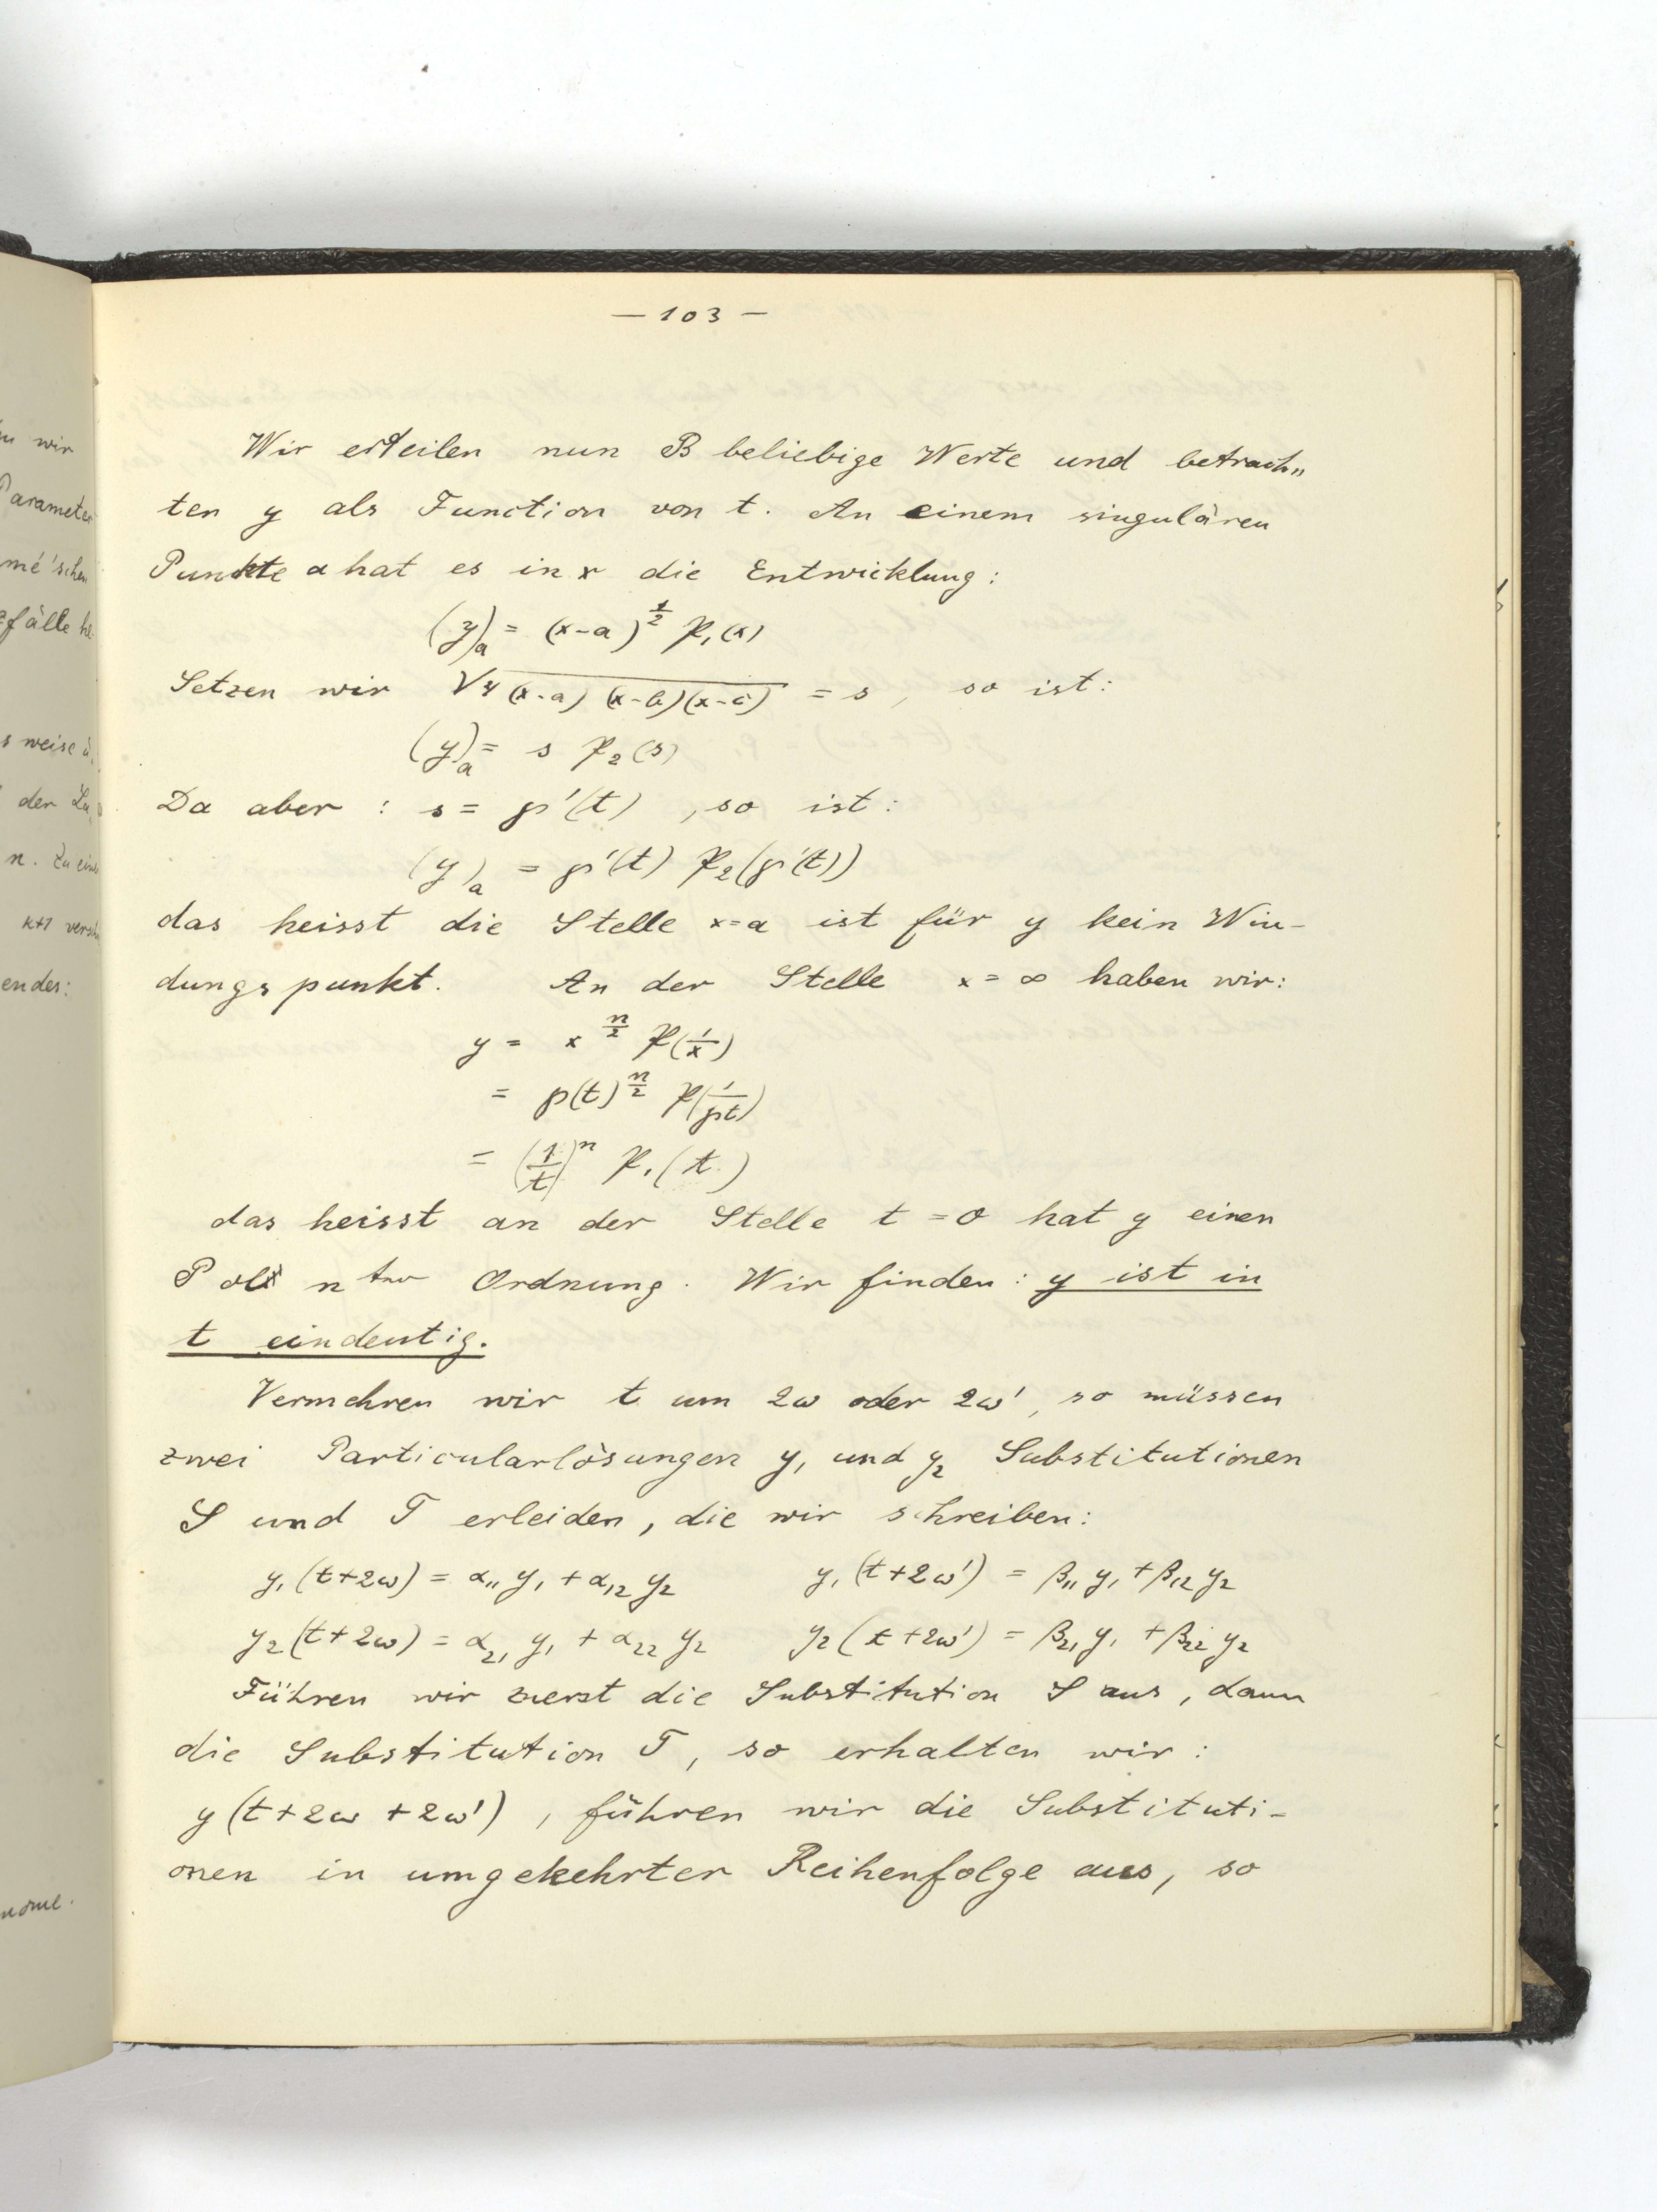 — 103 —
Wir erteilen nun B beliebige Werte und betrach„
ten y als Function von t. An einem singulären
Punkte a hat es in x die Entwicklung:
(y)ₐ = (x-a)^{1/2} 𝔓₁(x)
Setzen wir √4(x-a)(x-b)(x-c) = s, so ist:
(y)ₐ = s 𝔓₂(s)
Da aber : s = ℘'(t) , so ist:
(y)ₐ = ℘'(t) 𝔓₂(℘'(t))
das heisst die Stelle x=a ist für y kein Win-
dungspunkt. An der Stelle x = ∞ haben wir:
y = x^{n/2} 𝔓(1/x)
= ℘(t)^{n/2} 𝔓(1/℘t)
= (1/t)^n 𝔓₁(t)
das heisst an der Stelle t = 0 hat y einen
Pol n^{ter} Ordnung. Wir finden: y ist in
t eindeutig.
Vermehren wir t um 2ω oder 2ω', so müssen
zwei Particularlösungen y₁ und y₂ Substitutionen
S und T erleiden, die wir schreiben:
y₁(t+2ω) = α₁₁ y₁ + α₁₂ y₂ y₁(t+2ω') = β₁₁ y₁ + β₁₂ y₂
y₂(t+2ω) = α₂₁ y₁ + α₂₂ y₂ y₂(t+2ω') = β₂₁ y₁ + β₂₂ y₂
Führen wir zuerst die Substitution S aus, dann
die Substitution T, so erhalten wir :
y(t+2ω+2ω') , führen wir die Substituti-
onen in umgekehrter Reihenfolge aus, so
wir
Parameter
mé'schen
fälle
weise
der
n. Zu
k+1
endes: